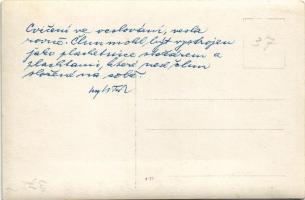 Cvičení ve veslování, vesla
rovně. Člun mohl být vystrojen
jako plachetnice stožárem a
plachtami, které nad člun
složené na sobě
37